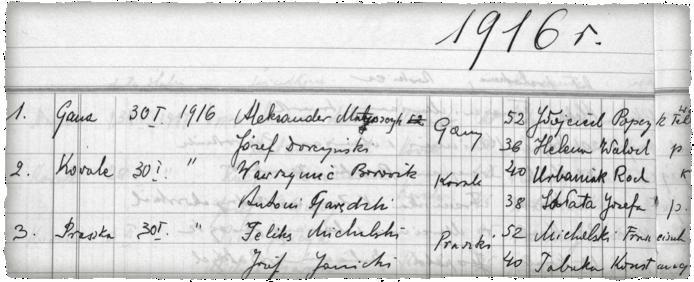 1916 r.
1. Gana 30 I 1916 Aleksander Gany 52 Wojciech Papczyk
Józef Dorzyński 36 Helena Waloch p
2. Kowale 30 I " Wawrzyniec Borowik Kowale 40 Urbaniak Roch K
Antoni Gawędzki 38 Sałata Józefa p.
3. Praszka 30 I " Feliks Michalski Praszki 52 Michalski Franciszek
Józef Janicki 40 Tabaka Konst